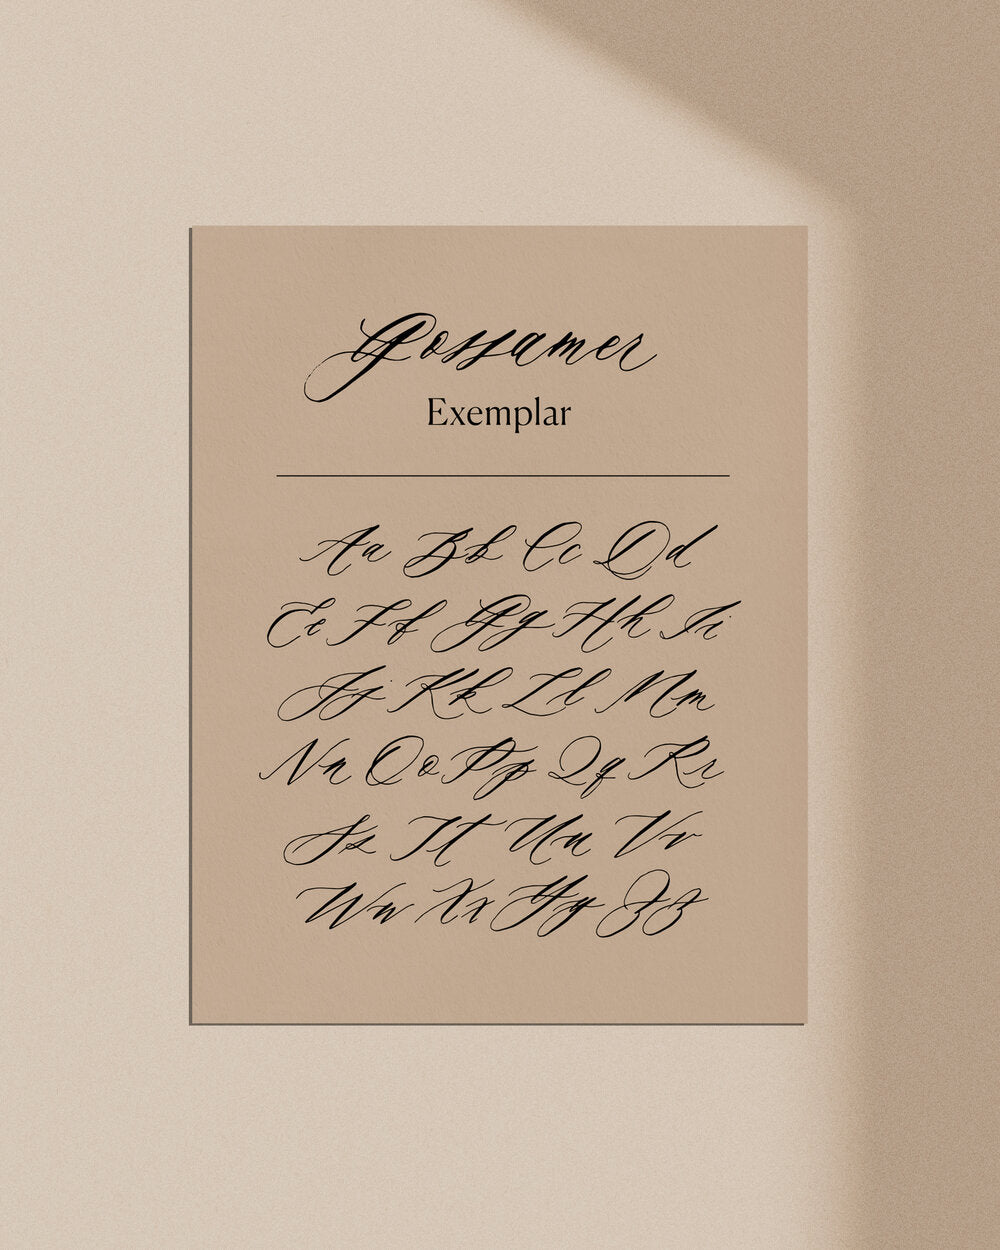 Gossamer
Exemplar
Aa Bb Cc Dd
Ee Ff Gg Hh Ii
Jj Kk Ll Mm
Nn Oo Pp Qq Rr
Ss Tt Uu Vv
Ww Xx Yy Zz